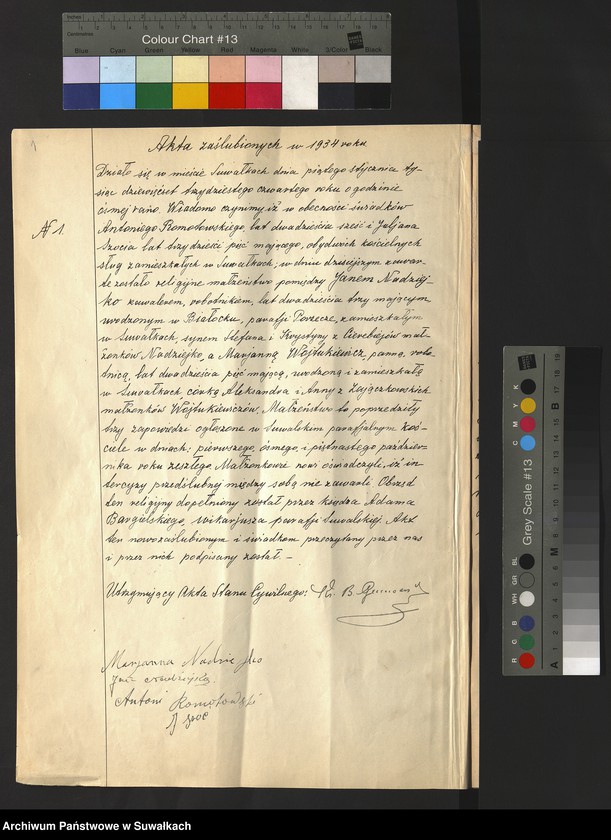 Colour Chart #13
Blue Cyan Green Yellow Red Magenta White 3/Color Black
1
Akta zaślubionych w 1934 roku
№ 1.
Działo się w mieście Suwałkach dnia piątego stycznia ty-
siąc dziewięćset trzydziestego czwartego roku o godzinie
ósmej rano. Wiadomo czynimy iż w obecności świadków
Antoniego Romotowskiego, lat dwadzieścia sześć i Juljana
Szocia lat trzydzieści pięć mającego, obydwóch kościelnych
sług zamieszkałych w Suwałkach; w dniu dzisiejszym zawar-
te zostało religijne małżeństwo pomiędzy Janem Nadziej-
ko kawalerem, robotnikiem, lat dwadzieścia trzy mającym
urodzonym w Białocku, parafji Porzecze, zamieszkałym
w Suwałkach, synem Stefana i Krystyny z Cierebiejów mał-
żonków Nadziejko, a Marjanną Wojtukiewicz, panną, robo-
tnicą, lat dwadzieścia pięć mającą, urodzoną i zamieszkałą
w Suwałkach, córką Aleksandra i Anny z Zajączkowskich
małżonków Wojtukiewiczów. Małżeństwo to poprzedziły
trzy zapowiedzi ogłoszone w Suwalskim parafjalnym koś-
ciele w dniach: pierwszego, ósmego i piętnastego paździer-
nika roku zeszłego. Małżonkowie nowi oświadczyli, iż in-
tercyzy przedślubnej między sobą nie zawarli. Obrzęd
ten religijny dopełniony został przez księdza Adama
Bargielskiego, wikarjusza parafji Suwalskiej. Akt
ten nowozaślubionym i świadkom przeczytany przez nas
i przez nich podpisany został. –
Utrzymujący Akta Stanu Cywilnego: Ks. B.
Marjanna Nadziejko
Jan Nadziejko
Antoni Romotowski
J Szoć
Grey Scale #13
R G B WH GR BL C M Y K
A M B
Archiwum Państwowe w Suwałkach